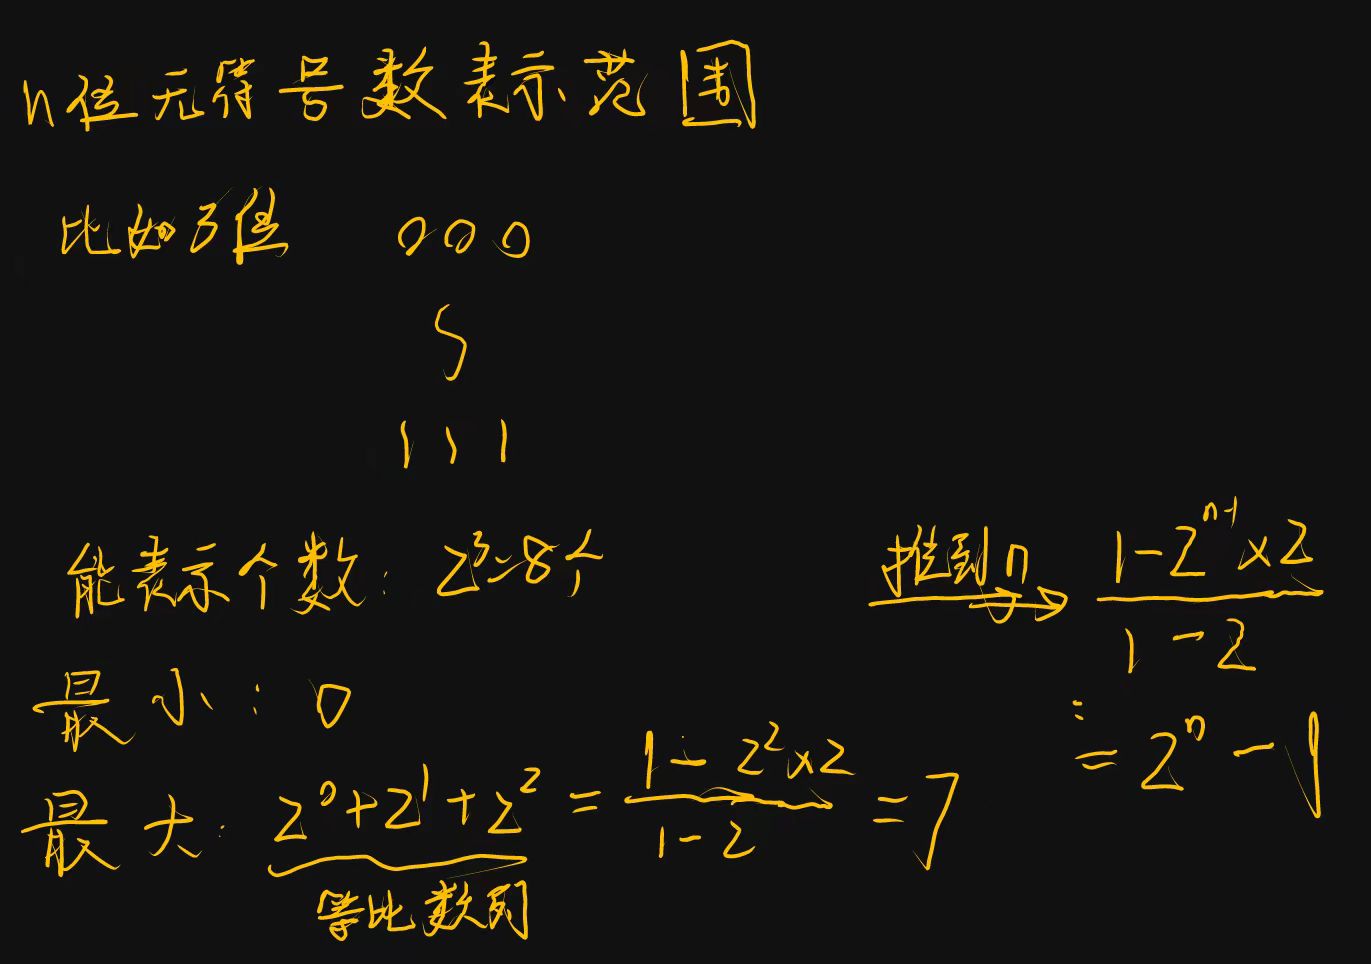 n位无符号数表示范围
比如3位 000
~
111
能表示个数: 2³=8个
最小: 0
最大: 2⁰+2¹+2² = (1-2²×2)/(1-2) = 7
等比数列
推到n → (1-2ⁿ⁻¹×2)/(1-2)
= 2ⁿ-1